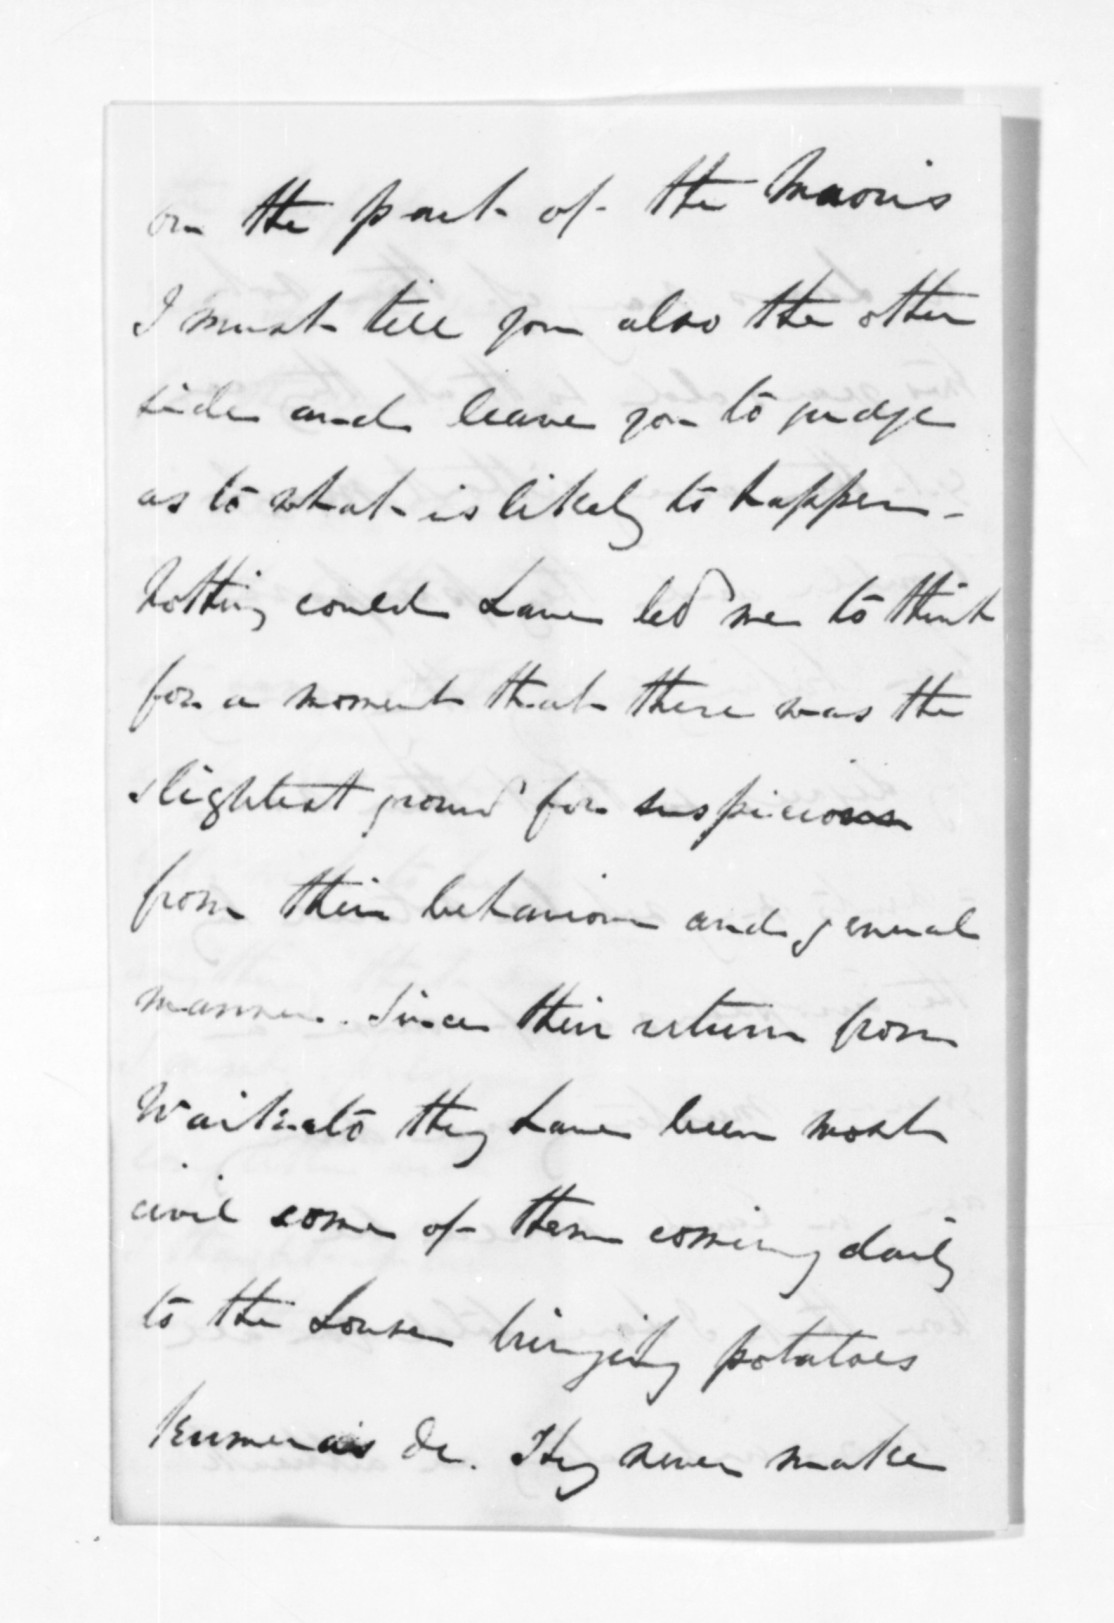 on the part of the Maoris
I must tell you also the other
side and leave you to judge
as to what is likely to happen -
Nothing could have led me to think
for a moment that there was the
slightest ground for suspicion
from their behaviour and general
manner. Since their return from
Waikato they have been most
civil some of them coming daily
to the house bringing potatoes
kumeras &c. They never make